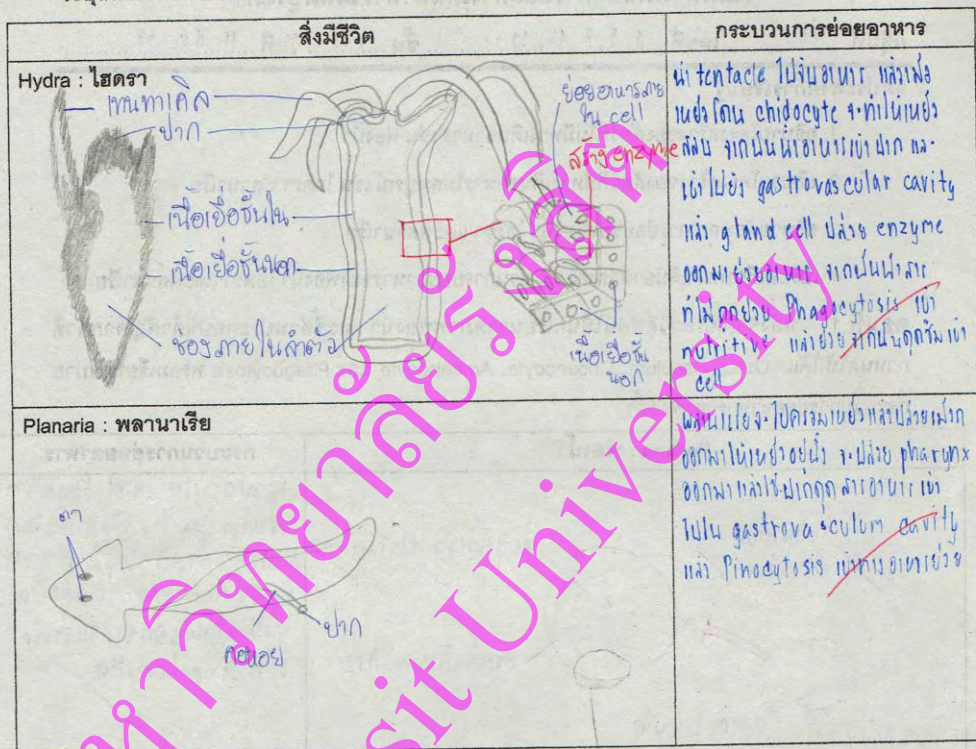 สิ่งมีชีวิต
กระบวนการย่อยอาหาร
Hydra : ไฮดรา
เทนทาเคิล
ปาก
เนื้อเยื่อชั้นใน
เนื้อเยื่อชั้นนอก
ช่องภายในลำตัว
ย่อยอาหารภาย
ใน cell
สร้าง enzyme
เนื้อเยื่อชั้น
นอก
นำ tentacle ไปจับอาหาร แล้วเมื่อ
เหยื่อโดน chidocyte จะทำให้เหยื่อ
สลบ จากนั้นนำอาหารเข้าปาก และ
เข้าไปยัง gastrovascular cavity
แล้ว gland cell ปล่อย enzyme
ออกมาย่อยอาหาร จากนั้นนำสาร
ที่ไม่ถูกย่อย Phagocytosis เข้า
nutritive แล้วย่อย จากนั้นดูดซึมเข้า
cell
Planaria : พลานาเรีย
ตา
คอหอย
ปาก
พลานาเรียจะไปคร่อมเหยื่อแล้วปล่อยเมือก
ออกมาให้เหยื่ออยู่นิ่ง จะปล่อย pharynx
ออกมาแล้วใช้ปากดูดสารอาหารเข้า
ไปใน gastrovasculum cavity
แล้ว Pinocytosis
สาธิต
มหาวิทยาลัยรังสิต
Rangsit University